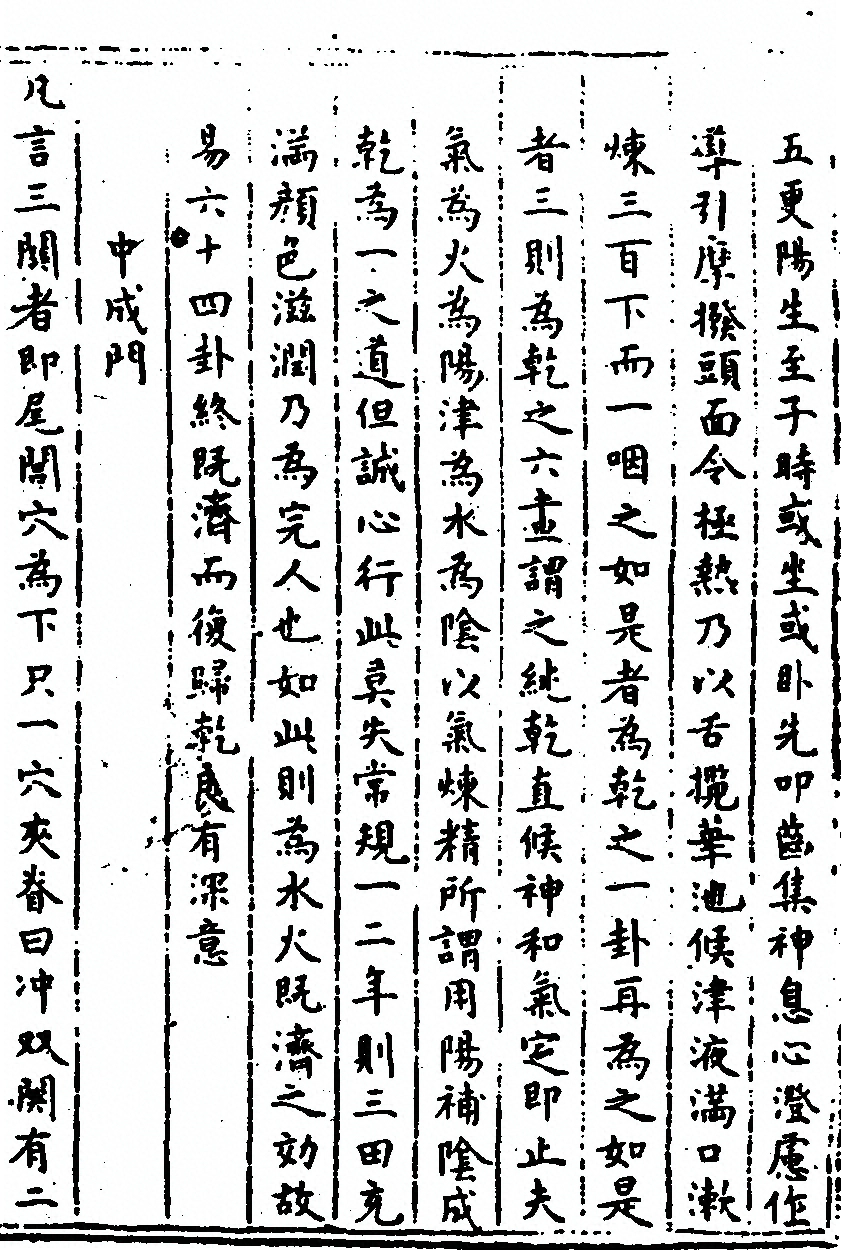 五更陽生至子時或坐或卧先叩齒集神息心澄慮作
導引摩撥頭面令極熱乃以舌攪華池候津液滿口漱
煉三百下而一咽之如是者為乾之一卦再為之如是
者三則為乾之六畫謂之純乾直候神和氣定即止夫
氣為火為陽津為水為陰以氣煉精所謂用陽補陰成
乾為一之道但誠心行此莫失常規一二年則三田充
滿顏色滋潤乃為完人也如此則為水火既濟之効故
易六十四卦終既濟而復歸乾良有深意
中成門
凡言三關者即尾閭穴為下只一穴夾脊曰冲双関有二